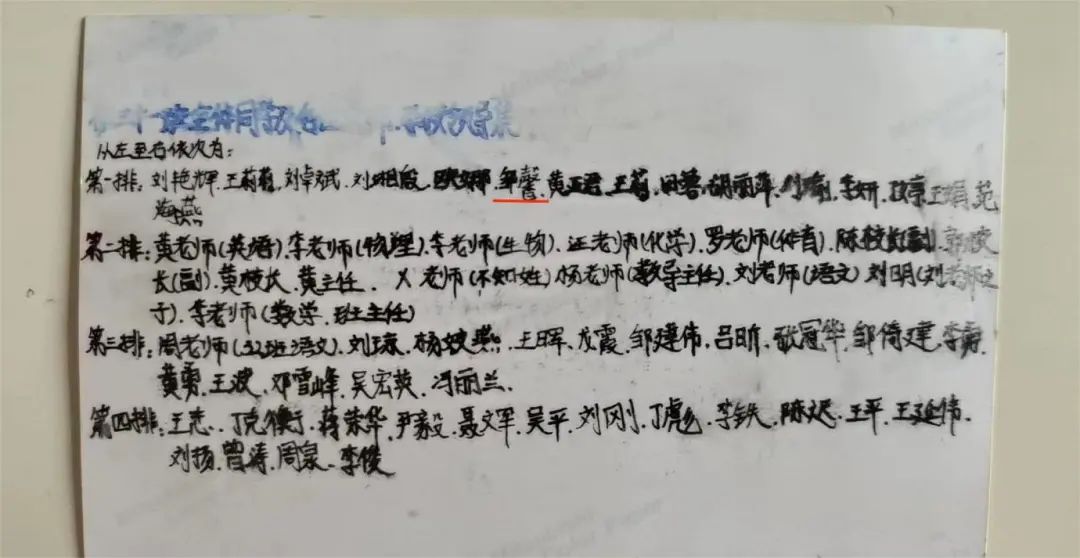 班全体同学
从左至右依次为:
第一排:刘艳辉.王莉莉.刘卓斌.刘.邹馨.黄正君.王莉.田蓉.胡丽萍.李妍.王娟.范
海燕
第二排:黄老师(英语).李老师(物理).李老师(生物).汪老师(化学).罗老师(体育).陈校长(副).郭校
长(副).黄校长.黄主任.X老师(不知姓)杨老师(教导主任).刘老师(语文)刘明(刘老师之
子).李老师(数学、班主任)
第三排:周老师(32班语文).刘琼.杨姣燕.王晖.龙霞.邹建伟.吕昕.耿冠华.邹倚建.李勇.
黄勇.王波.邓雪峰.吴宏英.冯丽兰.
第四排:王志.丁克衡.蒋荣华.尹毅.聂文军.吴平.刘刚.丁彪.李铁.陈迟.王平.王延伟.
刘扬.曾涛.周泉.李俊